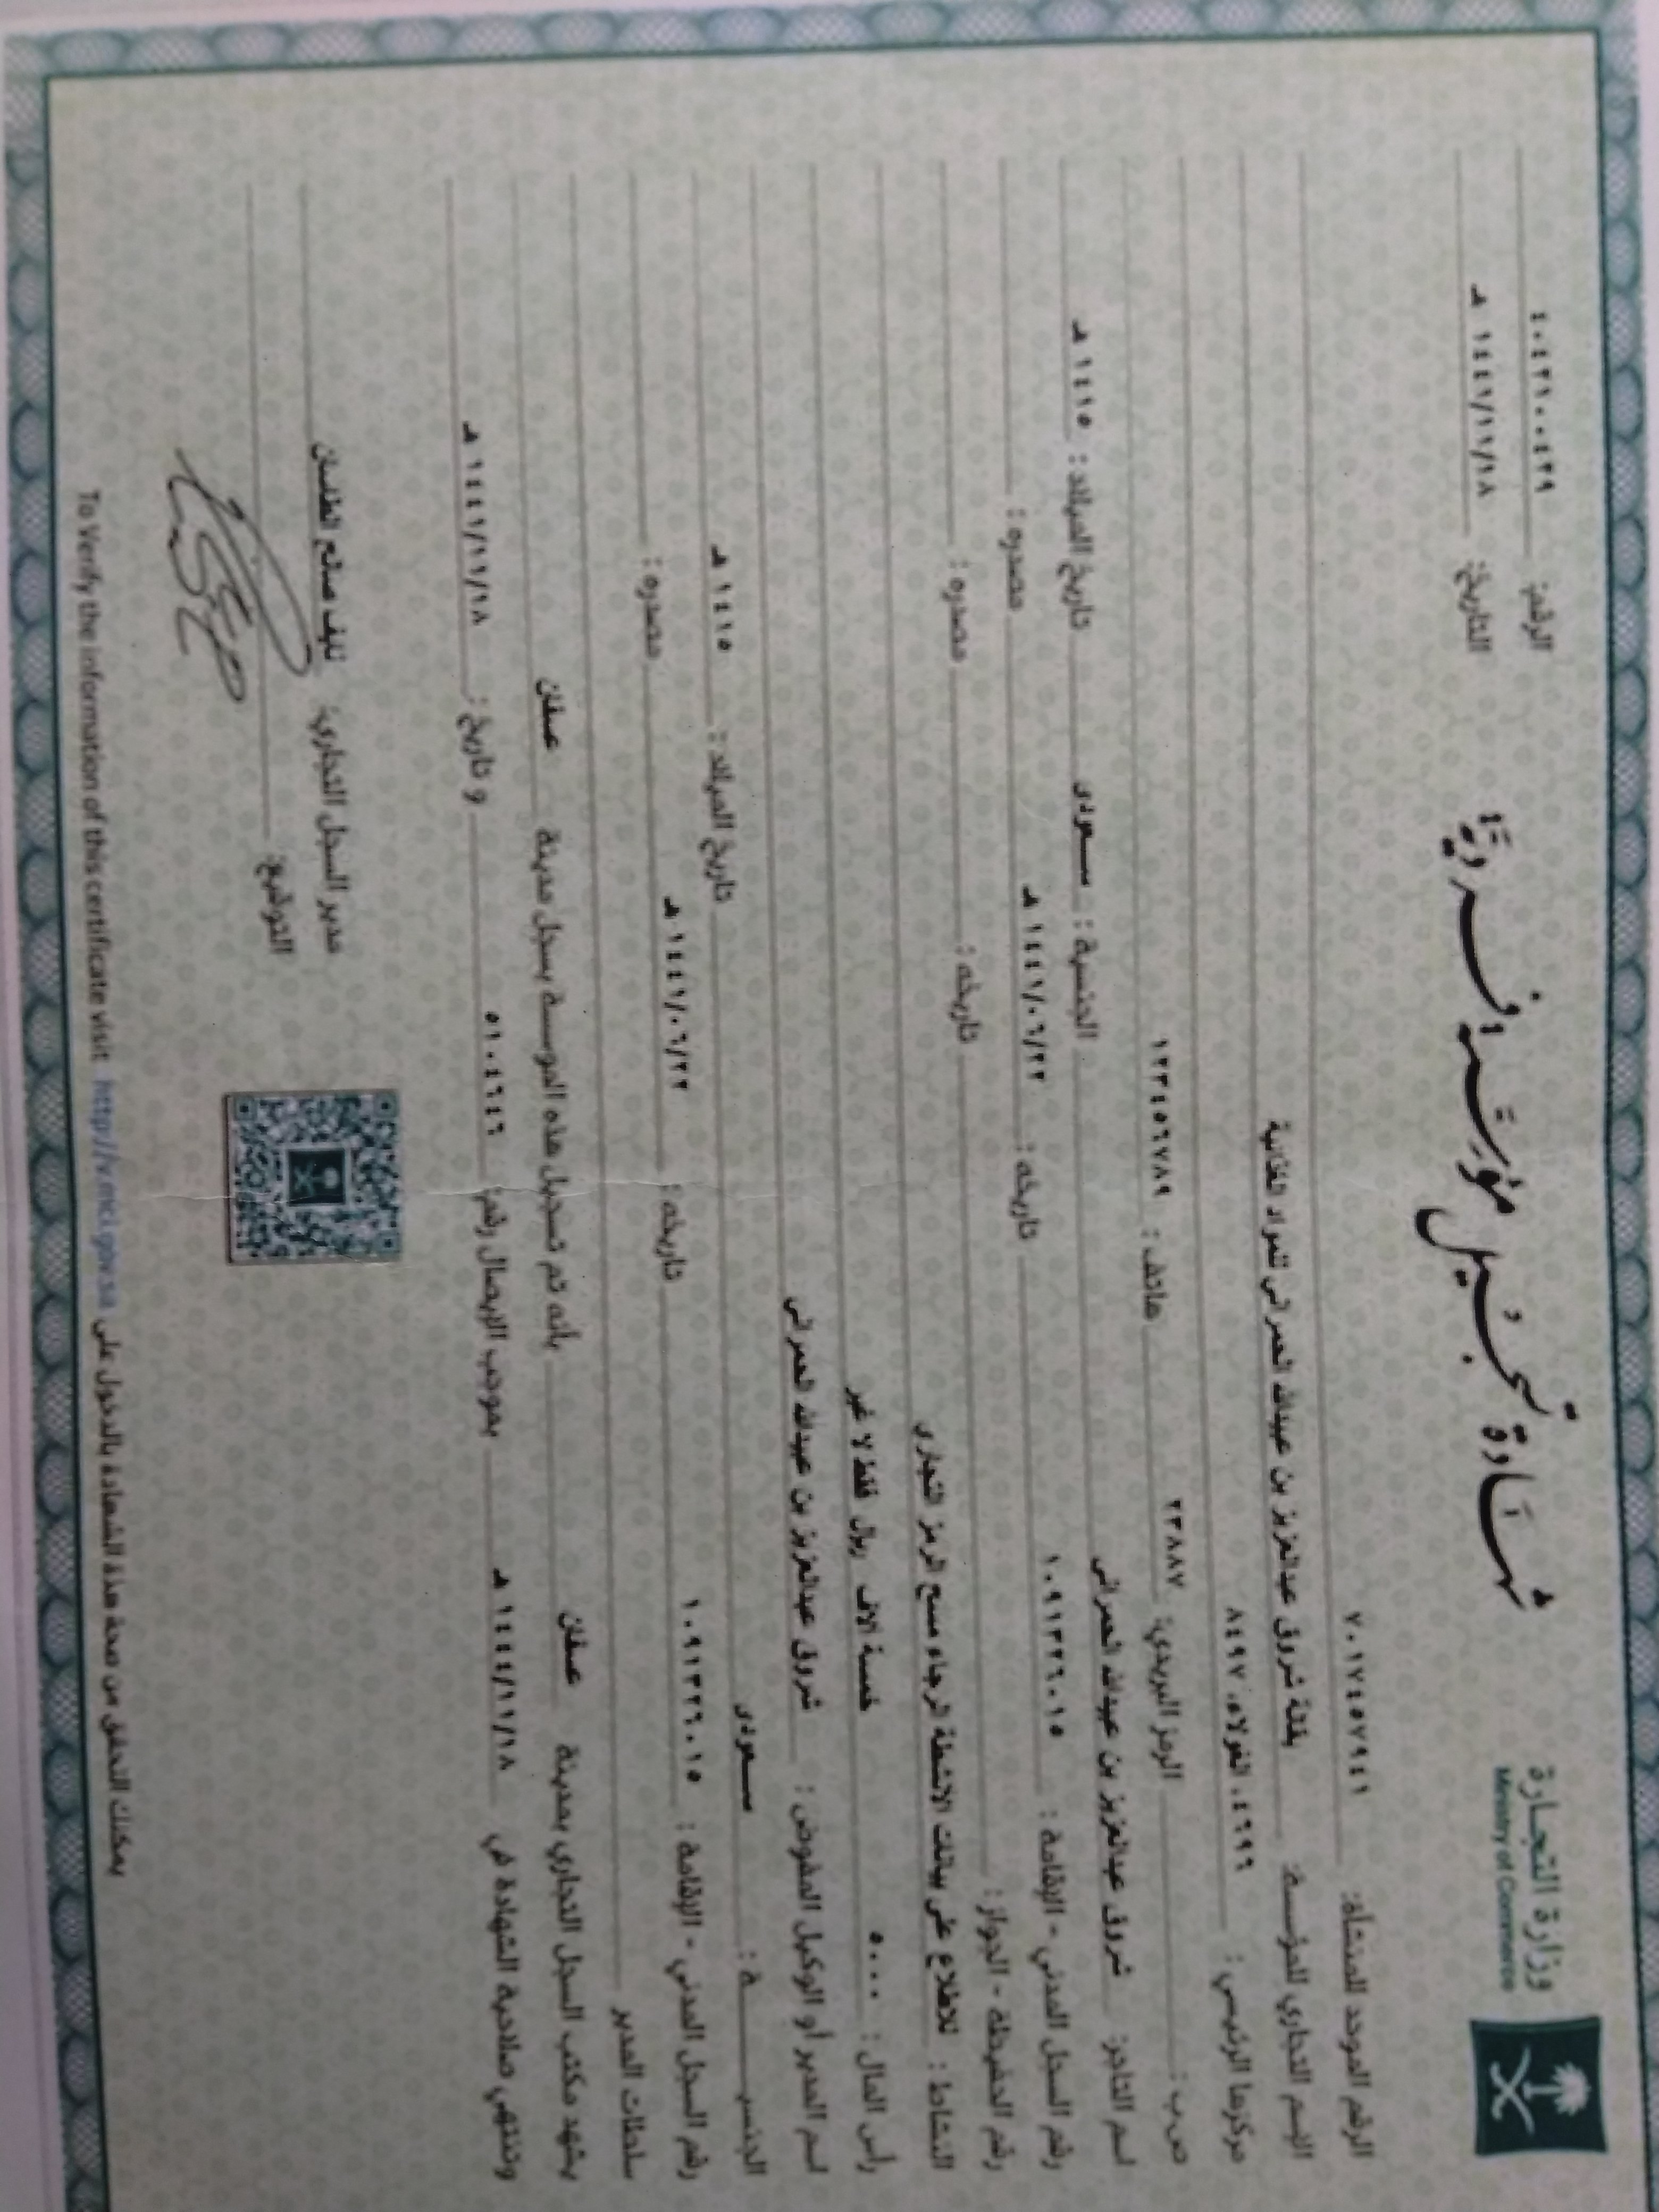 وزارة التجارة
Ministry of Commerce
شهادة تسجيل مؤسسة فردية
الرقم: ٤٠٤٢١٠٠٤٢٩
التاريخ: ١٤٤١/١١/١٨ هـ
الرقم الموحد للمنشأة: ٧٠١٧٤٥٧٩٤١
الإسم التجاري للمؤسسة: بقالة شروق عبدالعزيز بن عبيدالله العمراني للمواد الغذائية
مركزها الرئيسي: ٤٦٩٦، ٨٤٩٧
ص.ب: الرمز البريدي: ٢٣٨٨٧ هاتف: ١٢٣٤٥٦٧٨٩
اسم التاجر: شروق عبدالعزيز بن عبيدالله العمراني الجنسية: سعودى تاريخ الميلاد: ١٤١٥ هـ
رقم السجل المدني - الإقامة: ١٠٩١٣٢٦٠١٥ تاريخه: ١٤٤١/٠٦/٢٢ هـ مصدره:
رقم الحفيظة - الجواز: تاريخه: مصدره:
النشاط: للاطلاع على بيانات الانشطة الرجاء مسح الرمز التجارى
رأس المال: ٥٠٠٠ خمسة الاف ريال فقط لا غير
اسم المدير أو الوكيل المفوض: شروق عبدالعزيز بن عبيدالله العمراني
الجنسية: سعودى تاريخ الميلاد: ١٤١٥ هـ
رقم السجل المدني - الإقامة: ١٠٩١٣٢٦٠١٥ تاريخه: ١٤٤١/٠٦/٢٢ هـ مصدره:
سلطات المدير
يشهد مكتب السجل التجاري بمدينة عسفان بأنه تم تسجيل هذه المؤسسة بسجل مدينة عسفان
وتنتهي صلاحية الشهادة في ١٤٤٤/١١/١٨ هـ بموجب الإيصال رقم: ٥١٠٤٦٤٦ و تاريخ: ١٤٤١/١١/١٨ هـ
مدير السجل التجاري:
التوقيع
يمكنك التحقق من صحة هذة الشهادة بالدخول على http://v.mci.gov.sa To Verify the information of this certificate visit